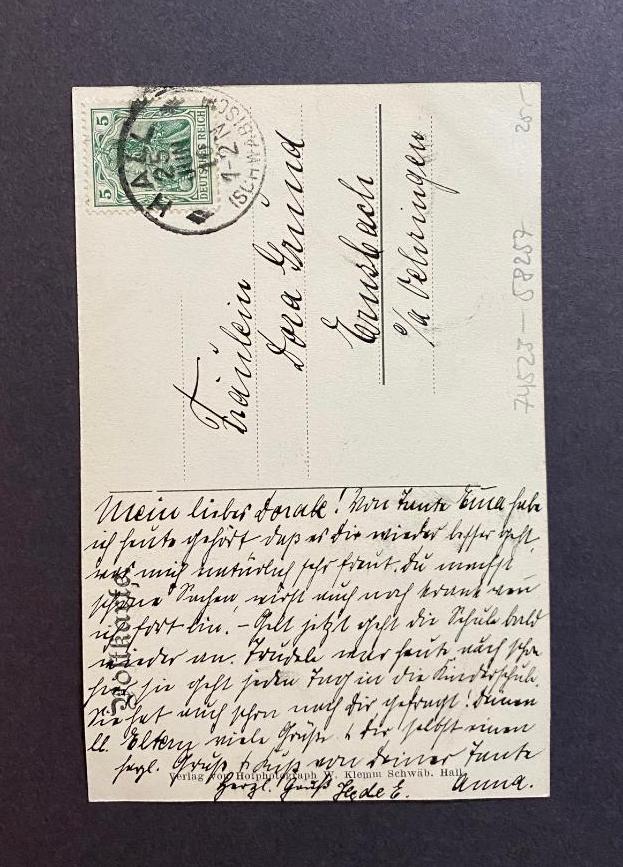 5
5
DEUTSCHES REICH
HALL
(SCHWÄBISCH)
25 JUN
1-2 N
Fräulein
Dora Gründ
Ernsbach
O/A Oehringen
25-
74523-58257
Postkarte
Mein liebes Dorale! Von Tante Ema habe
ich heute gehört daß es Dir wieder besser geht,
was mich natürlich sehr freut. Du machst
schöne Sachen, wirst auch noch krank wenn
ich fort bin. – Gelt jetzt geht die Schule bald
wieder an. Trudele war heute auch schon
hier, sie geht jeden Tag in die Kinderschule.
Sie hat auch schon nach Dir gefragt! Deinen
ll. Eltern viele Grüße & Dir selbst einen
herzl. Gruß & Kuß von Deiner Tante
Anna.
Herzl. Gruß Hede E.
Verlag von Hofphotograph W. Klemm Schwäb. Hall.